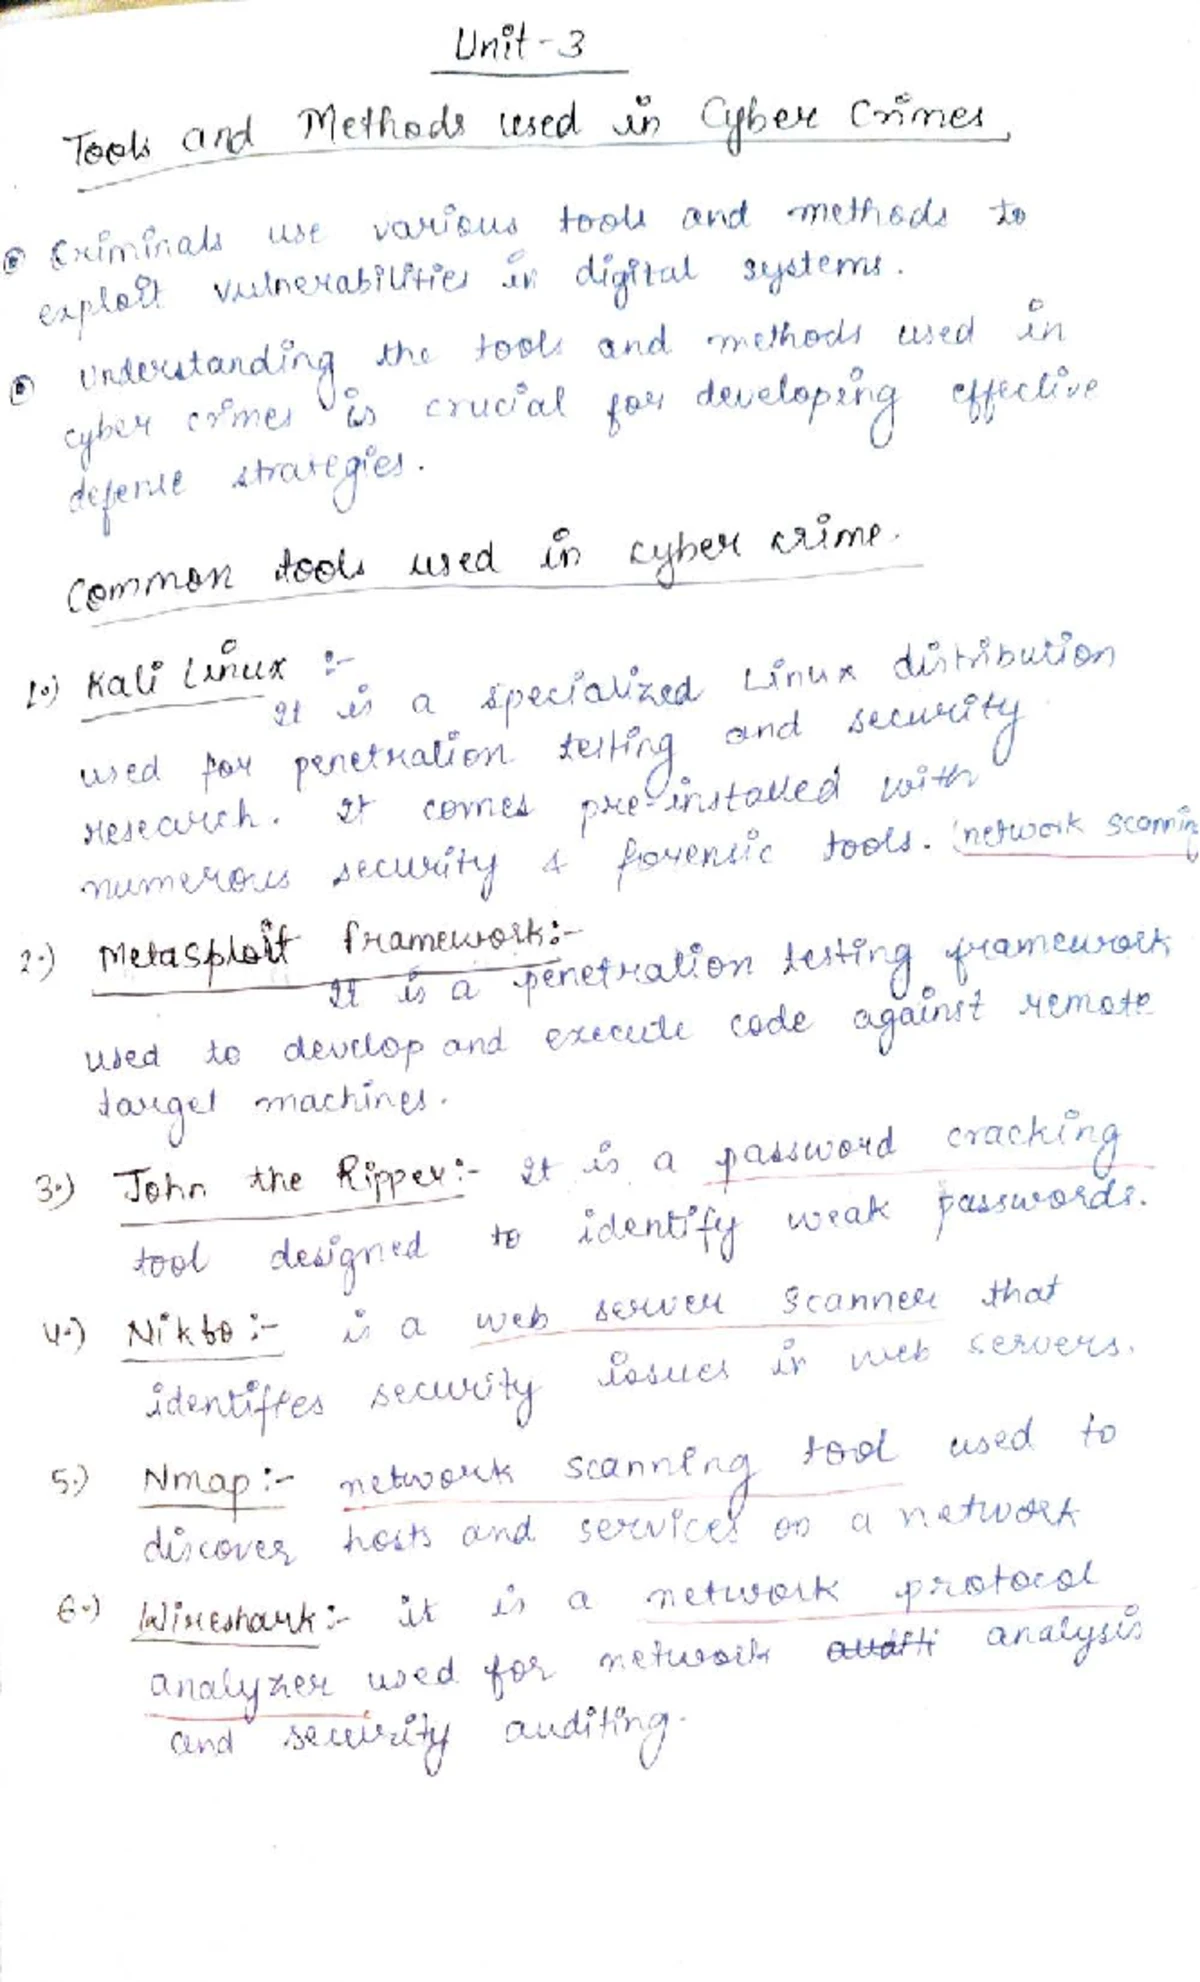 Unit-3
Tools and Methods used in Cyber Crimes
Criminals use various tools and methods to
exploit vulnerabilities in digital systems.
Understanding the tools and methods used in
cyber crimes is crucial for developing effective
defense strategies.
Common tools used in cyber crime.
1.) Kali Linux :-
It is a specialized Linux distribution
used for penetration testing and security
research. It comes pre-installed with
numerous security & forensic tools. (network scannin
2.) Metasploit framework:-
It is a penetration testing framework
used to develop and execute code against remote
target machines.
3.) John the Ripper:- It is a password cracking
tool designed to identify weak passwords.
4.) Nikto :- is a web server scanner that
identifies security issues in web servers.
5.) Nmap :- network scanning tool used to
discover hosts and services on a network
6.) Wireshark:- it is a network protocol
analyzer used for network auditi analysis
and security auditing.